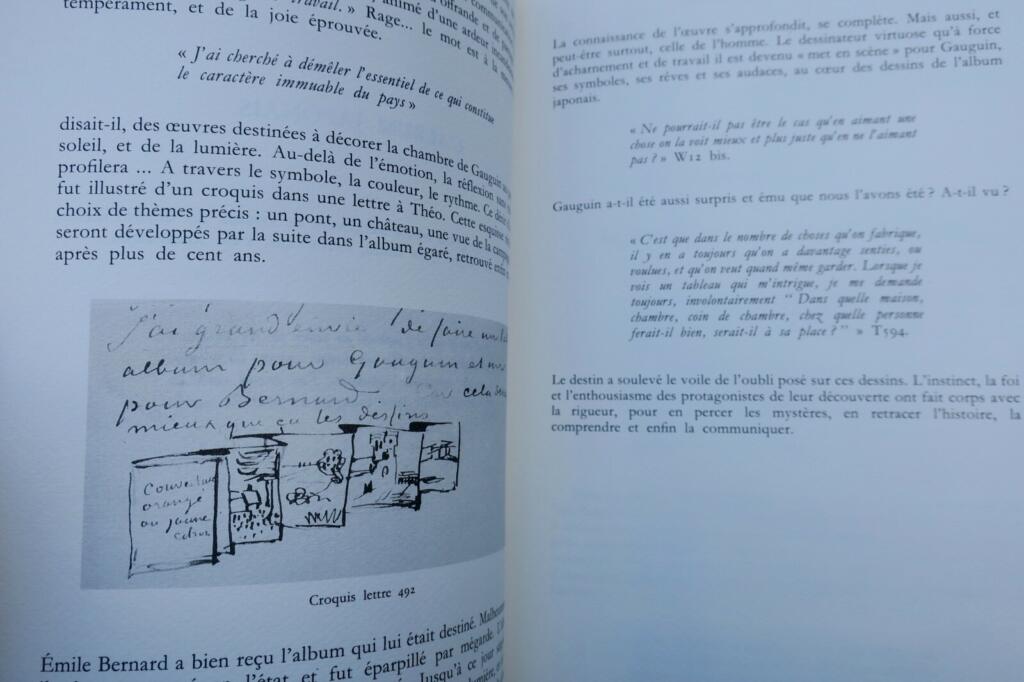 travail. » Rage... le mot est à la
tempérament, et de la joie éprouvée.
« J'ai cherché à démêler l'essentiel de ce qui constitue
le caractère immuable du pays »
disait-il, des œuvres destinées à décorer la chambre de Gauguin
soleil, et de la lumière. Au-delà de l'émotion, la réflexion
profilera ... A travers le symbole, la couleur, le rythme. Ce
fut illustré d'un croquis dans une lettre à Théo. Cette esquisse
choix de thèmes précis : un pont, un château, une vue de la
seront développés par la suite dans l'album égaré, retrouvé enfin
après plus de cent ans.
J'ai grand envie de faire
album pour Gauguin et
pour Bernard. cela
mieux que ça les dessins
Couverture
orangé
ou jaune
citron
Croquis lettre 492
Émile Bernard a bien reçu l'album qui lui était destiné.
l'état et fut éparpillé par mégarde.
Jusqu'à ce jour
La connaissance de l'œuvre s'approfondit, se complète. Mais aussi, et
peut-être surtout, celle de l'homme. Le dessinateur virtuose qu'à force
d'acharnement et de travail il est devenu « met en scène » pour Gauguin,
ses symboles, ses rêves et ses audaces, au cœur des dessins de l'album
japonais.
« Ne pourrait-il pas être le cas qu'en aimant une
chose on la voit mieux et plus juste qu'en ne l'aimant
pas ? » W12 bis.
Gauguin a-t-il été aussi surpris et ému que nous l'avons été ? A-t-il vu ?
« C'est que dans le nombre de choses qu'on fabrique,
il y en a toujours qu'on a davantage senties, ou
voulues, et qu'on veut quand même garder. Lorsque je
vois un tableau qui m'intrigue, je me demande
toujours, involontairement " Dans quelle maison,
chambre, coin de chambre, chez quelle personne
ferait-il bien, serait-il à sa place ? " » T594.
Le destin a soulevé le voile de l'oubli posé sur ces dessins. L'instinct, la foi
et l'enthousiasme des protagonistes de leur découverte ont fait corps avec
la rigueur, pour en percer les mystères, en retracer l'histoire, la
comprendre et enfin la communiquer.